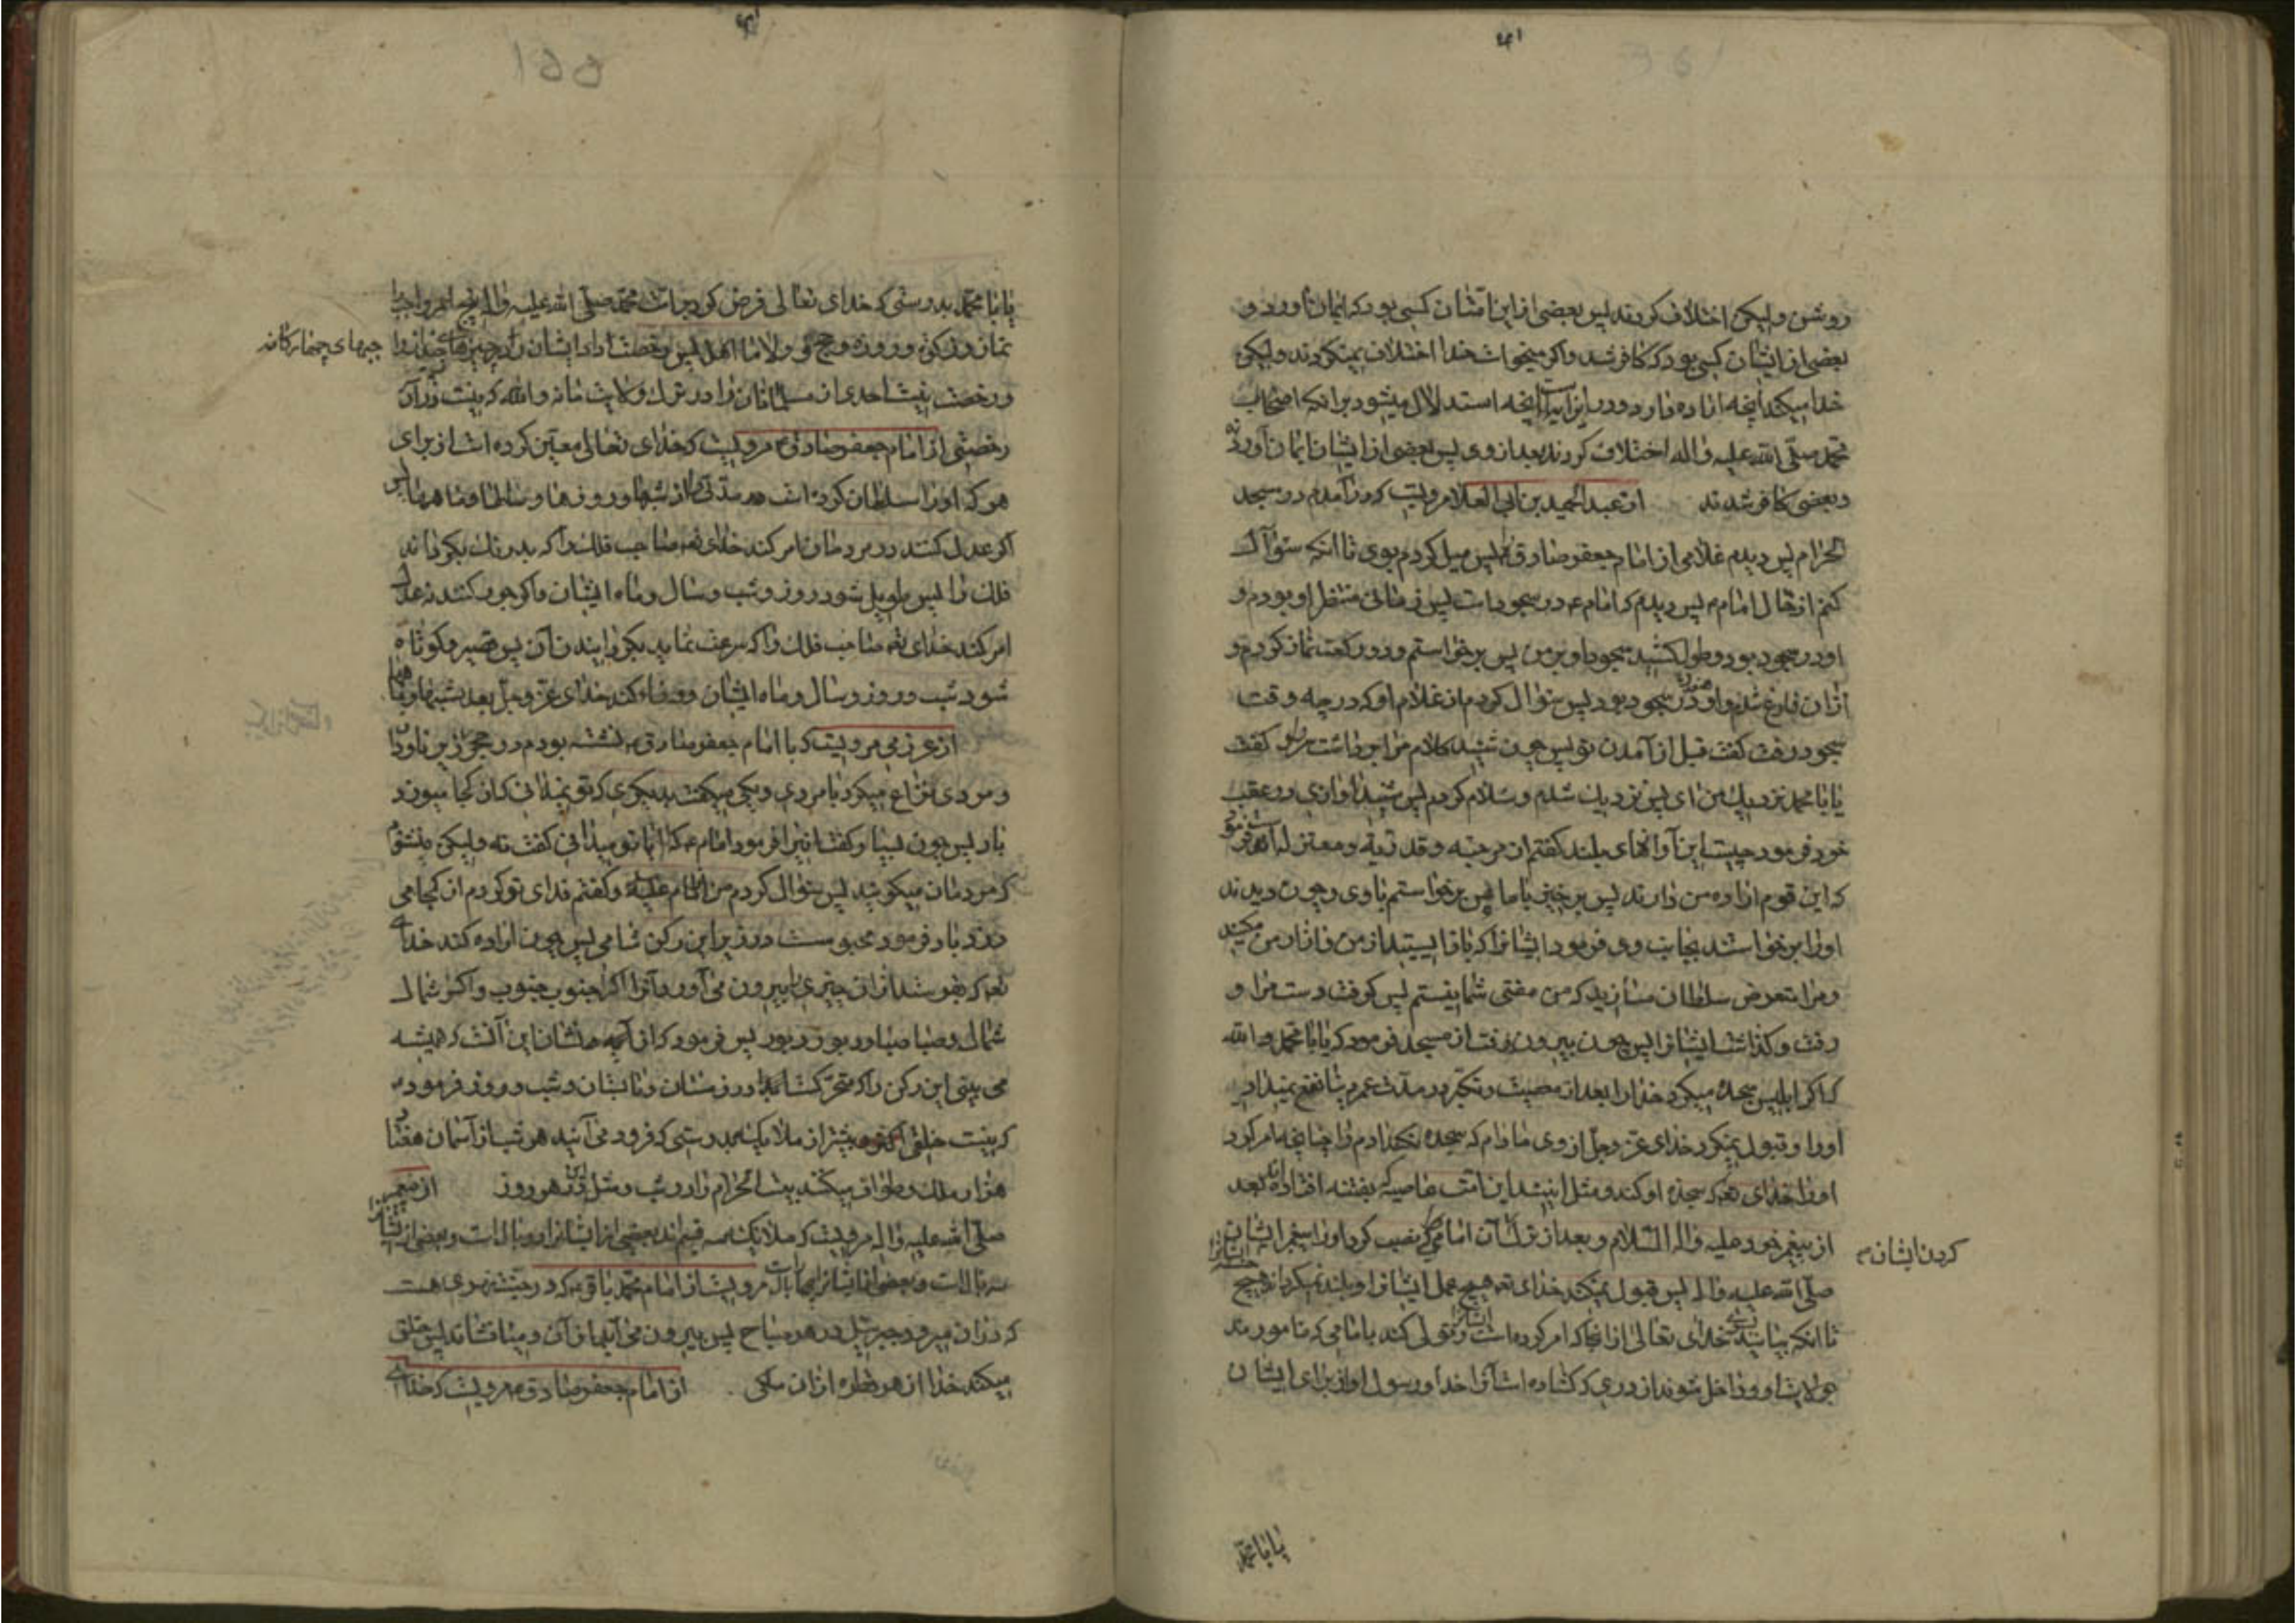 روشن وليكن اختلاف كردند پس بعضی از این امتشان کسی بود که ایمان آورد و
بعضی از ایشان کسی بود که کافر شد و اگر میخواست خدا اختلاف نمیکردند ولیکن
خدا میکند آنچه اراده دارد و در این آیات آنچه استدلال میشود بر آنکه اصحاب
محمد صلی الله علیه و اله اختلاف کردند بعد از وی پس بعضی از ایشان ایمان آوردند
و بعضی کافر شدند از عبد الحمید بن ابی العلا مرویست که در آمدم در مسجد
الحرام پس دیدم غلامی از امام جعفر صادق پس میل کردم بوی تا آنکه سؤال
کنم از حال امام پس دیدم که امام در سجود است پس زمانی منتظر او بودم و
او در سجود بود و طول کشید سجود او بر من پس برخواستم و دو رکعت نماز کردم و
ازان فارغ شدم و او در سجود بود پس سؤال کردم از غلام او که در چه وقت
سجود رفت گفت قبل از آمدن تو پس چون شنید کلام مرا برداشت سر گفت
یا ابا محمد نزدیک من ای پس نزدیک شدم و سلام کردم پس شنید آوازی در عقب
خود فرمود چیست این آوازهای بلند گفتم از مرجئه و قدریه و معتزله فرمود
که این قوم اراده من دارند پس برخیز با ما پس برخواستم با وی و چون دیدند
او را برخواستند بجانب وی فرمود ایشانرا که باز ایستید از من و آزار من مکنید
و مرا متعرض سلطان مسازید که من مفتی شما نیستم پس گرفت دست مرا و
رفت و گذاشت ایشانرا پس چون بیرون رفت از مسجد فرمود که یا ابا محمد والله
که اگر ابلیس سجده میکرد خدا را بعد از معصیت و تکبر در مدت عمر دنیا نفع نمیداد
او را و قبول نمیکرد خدای عز و جل از وی مادام که سجده نکند ادم را چنانچه امر کرد
او را خدای تعه که سجده او کند و مثل اینند این امت عاصیه که بفتنه افتاده‌اند بعد
از پیغمبر خود علیه و اله السلام و بعد از ترک ایشان امامی که نصب کرد او را پیغمبر ایشان
کردن ایشان
صلی الله علیه و اله پس قبول نمیکند خدای تعه هیچ عمل ایشانرا و بلند نمیگرداند هیچ
تا آنکه بیایند خدای تعالی از آنجا که امر کرده است و تولی کنند بامامی که مامورند
بولایت او و داخل شوند از دری که گشاده است آنرا خدا و رسول او از برای ایشان
یا ابا محمد
یا ابا محمد بدرستی که خدای تعالی فرض کرد بر امت محمد صلی الله علیه و اله پنج امر واجب
نماز و زکوة و روزه و حج و ولا ما اهل بیت پس رخصت داد ایشان را در چیزهای چند از
چیزهای چهارگانه
و رخصت نیست احدی از مسلمانان را در ترک ولایت ما نه والله که نیست در آن
رخصتی از امام جعفر صادق مرویست که خدای تعالی معین کرده است از برای
هر که او را سلطان کرده است مدتی از شبها و روزها و سالها و ماهها پس
اگر عدل کنند در مردمان امر کند خدای تعه صاحب فلک را که بدرنگ بگرداند
فلک را پس طویل شود روز و شب و سال و ماه ایشان و اگر جور کنند نه عدل
امر کند خدای تعه صاحب فلک را که سرعت نماید بگردانیدن آن پس قصیر و کوتاه
شود شب و روز و سال و ماه ایشان و وفا کند خدای عز و جل بعدد شبها و ماهها
از عرزمی مرویست که با امام جعفر صادق نشسته بودم در حجر زیر ناودان
و مردی نزاع میکرد با مردی و یکی میگفت بدیگری که تو نمیدانی که از کجا میوزد
باد پس چون بسیار گفت اینرا فرمود امام که ایا تو میدانی گفت نه ولیکن میشنوم
که مردمان میگویند پس سؤال کردم من امام علیه و گفتم فدای تو گردم از کجا می
وزد باد فرمود محبوست در زیر این رکن شامی پس چون اراده کند خدای
تعه که بفرستد ازان چیزی را بیرون می‌آورد آنرا اگر جنوب جنوب و اگر شمال
شمال و صبا صبا و دبور دبور پس فرمود که از آیه و نشان این آنست که همیشه
می بینی این رکن را که متحرکست در زمستان و تابستان و شب و روز فرمود
که نیست خلقی بیشتر از ملایکه بدرستی که فرود می آیند هر شب از آسمان هفتاد
هزار ملک و طواف میکنند بیت الحرام را در شب و مثل این در هر روز از پیغمبر
صلی الله علیه و اله مرویست که ملایکه سه قسم‌اند بعضی از ایشانرا دو بالست و بعضی از ایشانرا
سه بالست و بعضی از ایشانرا چهار بالست مرویست از امام محمد باقر که در جنت نهری هست
که در آن میرود جبرئیل در هر صباح پس بیرون می آید از آن و میافشاند پس خلق
میکند خدا از هر قطره ازان ملکی از امام جعفر صادق مرویست که خدای